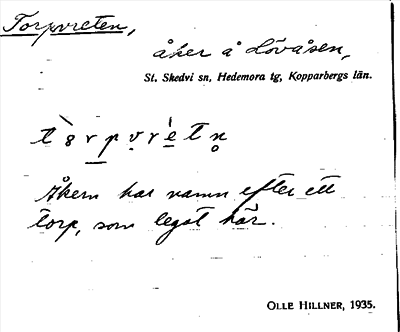 Torpvreten,
åker å Lövåsen,
St. Skedvi sn, Hedemora tg, Kopparbergs län.
Åkern har namn efter ett
torp, som legat här.
OLLE HILLNER, 1935.